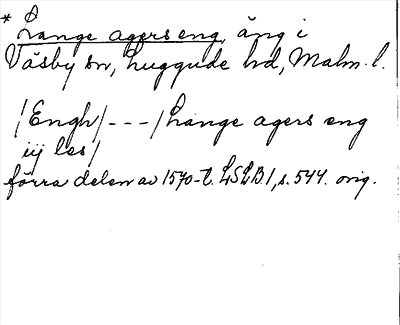 * Lange agers eng, äng i
Väsby sn, Luggude hd, Malm. l.
/Engh/---/Lange agers eng
iij les/
förra delen av 1570-t. LSLB. 1, s. 544. orig.